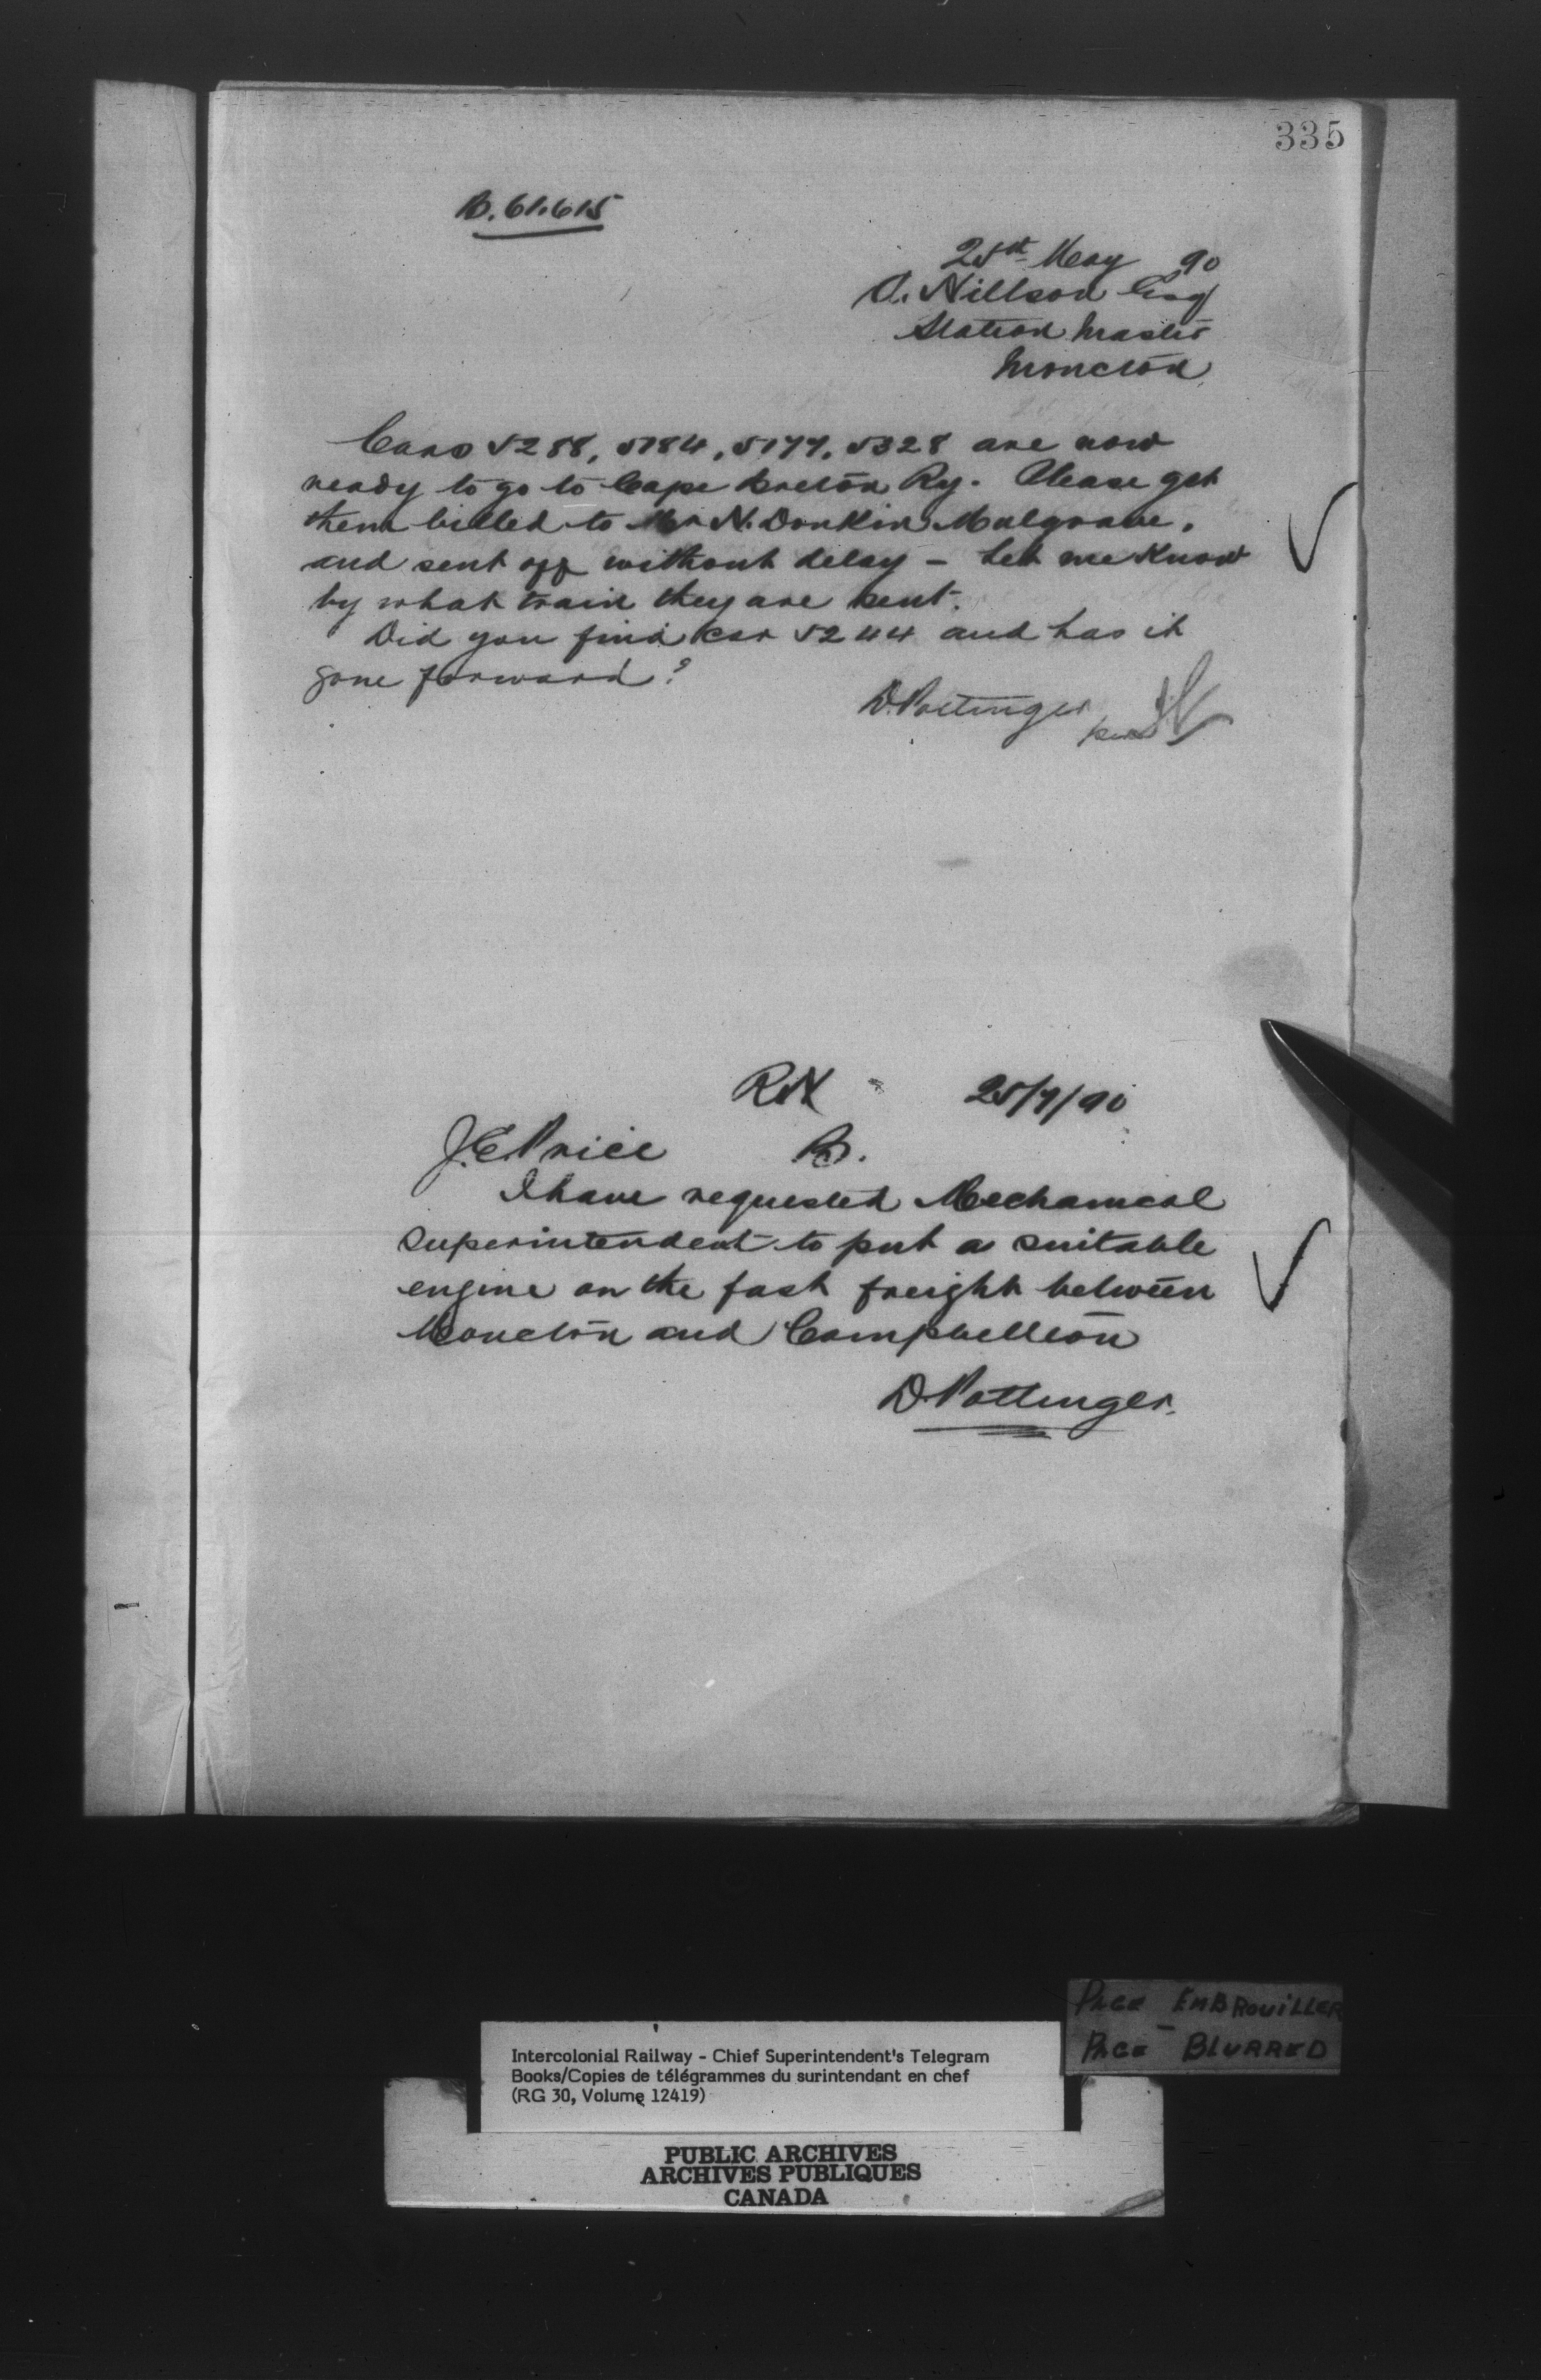 335
B. 61.615
25th May 90
A. Nillson Esq
Station Master
Moncton
Cars 5288, 5184, 5177, 5328 are now
ready to go to Cape Breton Ry. Please get
them billed to Mr N. Donkin Mulgrave,
and sent off without delay - Let me know
by what train they are sent.
Did you find car 5244 and has it
gone forward?
D. Pottinger
per
25/7/90
J.E. Price B.
I have requested Mechanical
Superintendent to put a suitable
engine on the fast freight between
Moncton and Campbellton
D. Pottinger.
PAGE EMBROUILLER
PAGE BLURRED
Intercolonial Railway - Chief Superintendent's Telegram
Books/Copies de télégrammes du surintendant en chef
(RG 30, Volume 12419)
PUBLIC ARCHIVES
ARCHIVES PUBLIQUES
CANADA